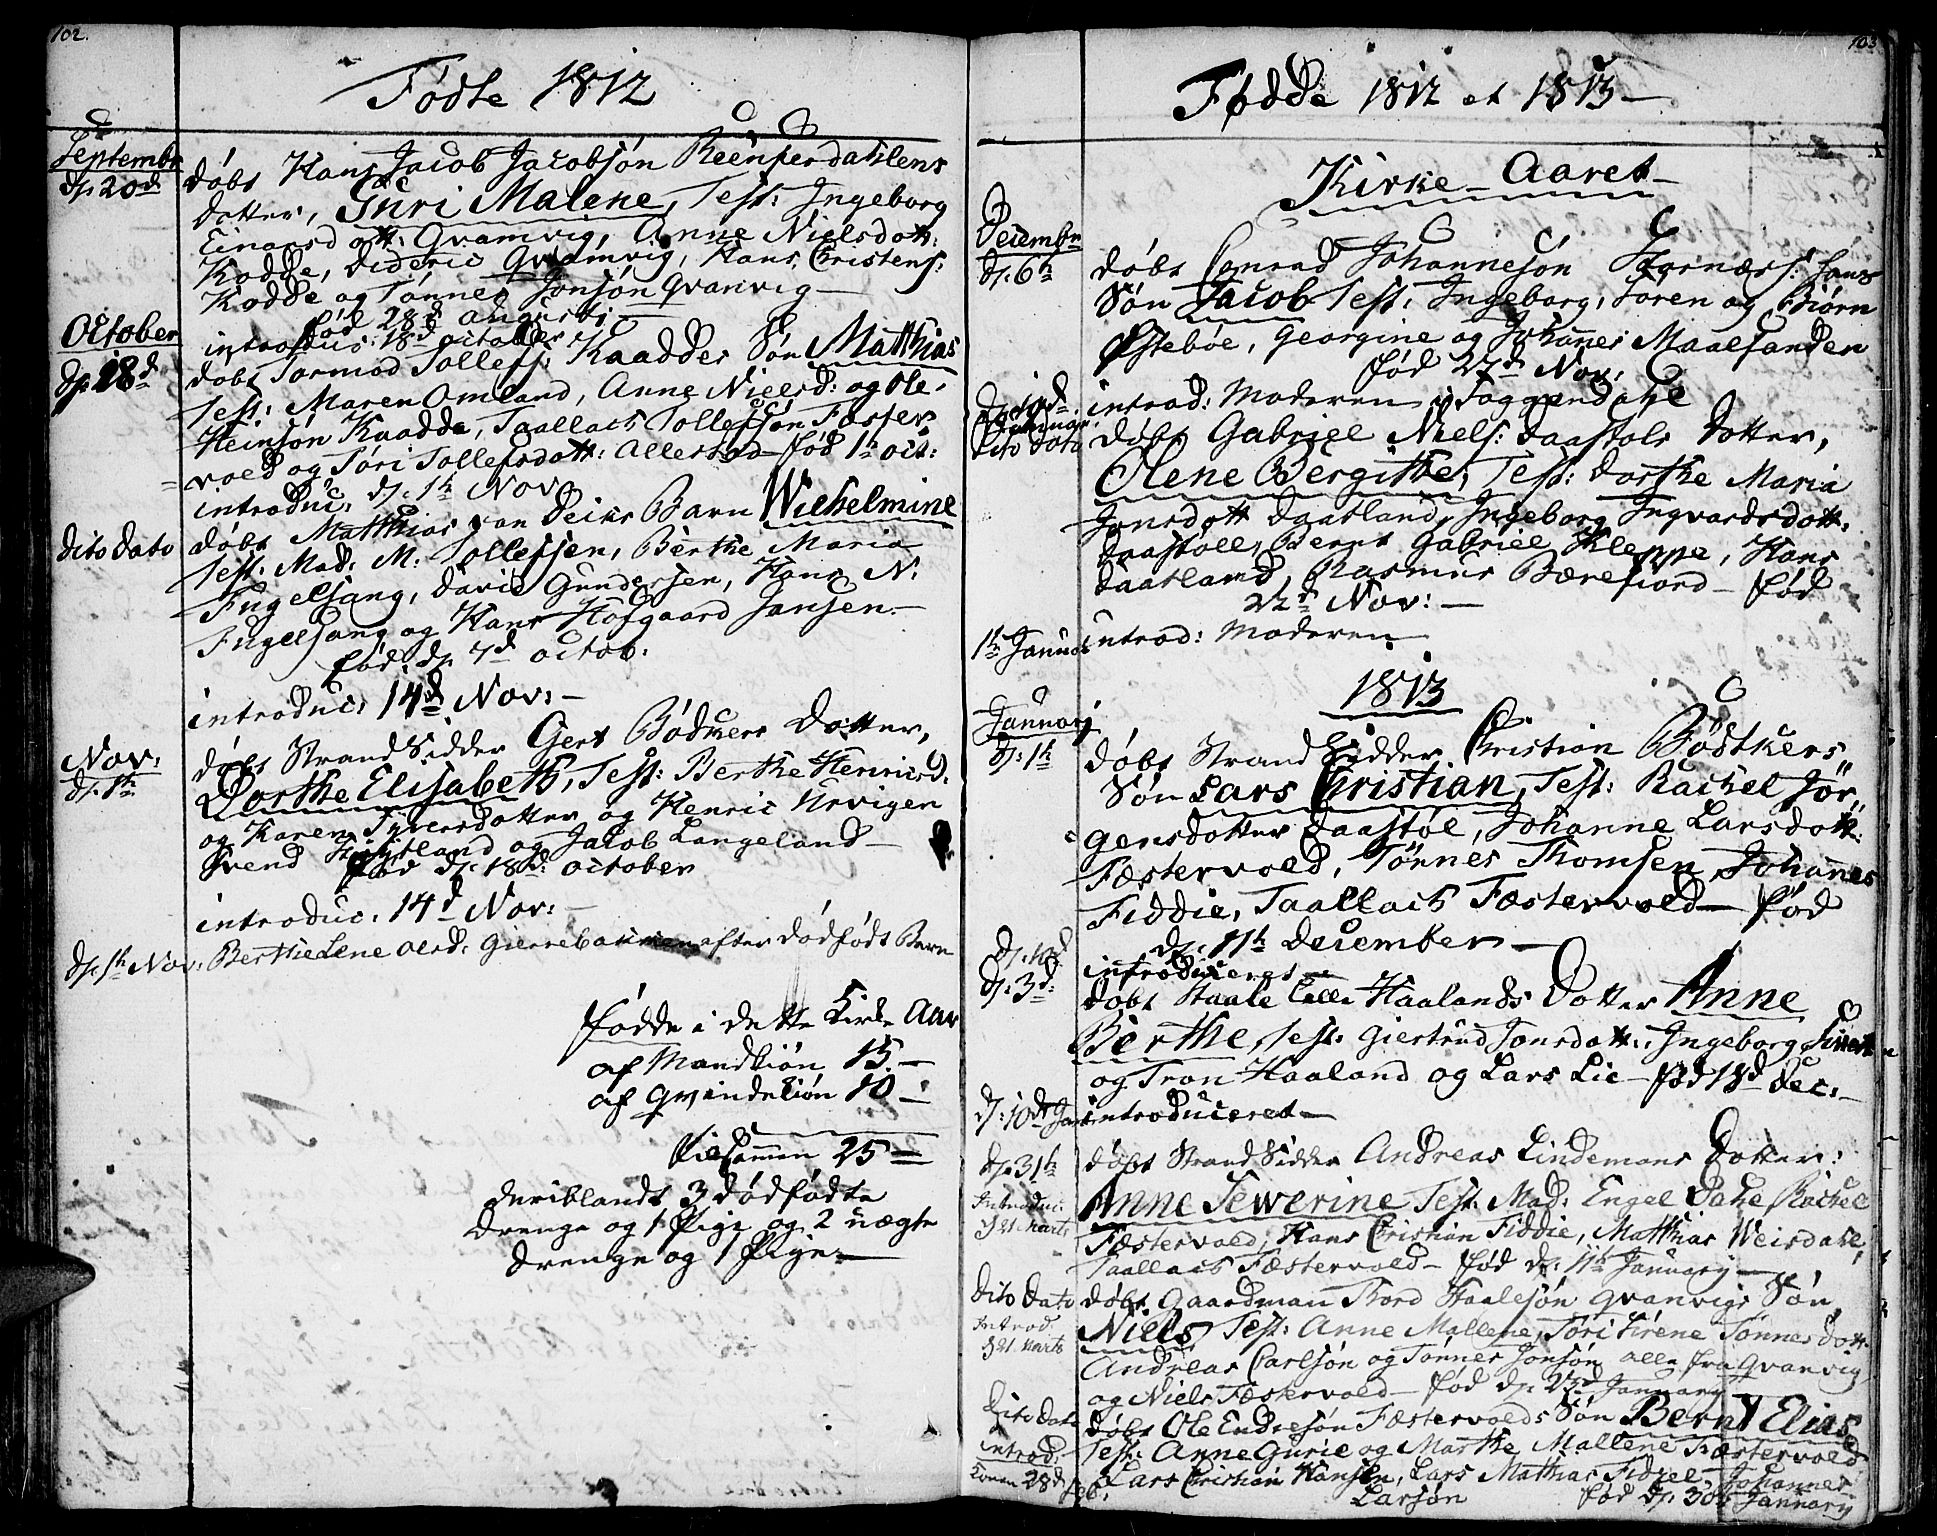 102.
Fødte 1812
Septembr
dobt Hans Jacob Jacobsøn Reenperdahlens
d. 20d
datter, Guri Malene, Test: Ingeborg
Einarsdott: Qvamvig, Anne Nielsdott:
Kodde, Dideric Qvamvig, Hans Christens:
Kodde og Tønnes Jonsøn Qvanvig —
fød 28d Augusti
introduc: 18d october
October
d. 18d
dobt Tormod Tollefs: Kaaddes Søn Matthias
Test: Maren Omland, Anne Nielsd: og Ole
Heinsøn Kaadde, Taallach Tollefsøn Fæster
vold og Tøri Tollefsdott: Allestad — fød 1h oct:
introduc: d. 1h Nov:
dito dato
dobt Matthias van Deiks Barn Wilhelmine
Test: Mad: M: Tollefsen, Berthe Maria
Fugelsang, David Gundersen, Hans N:
Fugelsang og Hans Hofgaard Jansen. —
fød. d. 7d octob:
introduc: 14d Nov: —
Nov:
d. 1h
døbt StrandSidder Gert Bødkers Dotter,
Dorthe Elisabeth, Test: Berthe Henricsd:
og Karen Siversdotter og Henric Urvigen
Svend og Jacob Langeland —
fød d. 18d october
introduc: 14d Nov: —
d. 1h Nov: Berthe Lene olesd: Gierrebakken efter dødfødt Barn
fødde i dette Kirke Aar
af Mandkiøn 15. —
af Qvindekiøn 10 —
Tilsammen 25 —
deriblandt 3 dødfødte
drenge og 1 Pige og 2 uægte
drenge og 1 Pige. —
103
Fødde 1812 et 1813 —
Kirke — Aaret —
Decembr
d. 6h
døbt Conrad Johannesøn Stornæs: Hans
Søn Jacob Test: Ingeborg, Soren og Biørn
Østebøe, Georgine og Johanes Maalsanden
fød 27d Nov:
introd: Moderen i Foggendahl
dito dato
døbt Gabriel Niels: Daastøls Dotter,
Olene Bergithe, Test: Dorthe Maria
Jonsdott Daatland, Ingeborg Ingvardsdott:
Daastoll, Bernt Gabriel Kleppe, Hans
Daatland, Rasmus Bærefiord — fød
22d Nov: —
1h Januar introd: Moderen
1813
Januarj
d. 1h
døbt StrandSidder Christian Bødtkers
Søn Lars Christian, Test: Rachel Jør,,
gensdotter Daastøl, Johanne Larsdott:
Fæstervold, Tønnes Thomsen, Johannes
Fiddie, Taallach Fæstervold — fød
d. 11h December —
introduceret —
d. 3d
døbt Staale Haalands Dotter Anne
Berthe, Test: Giertrud Jonsdott:, Ingeborg
og Tron Haaland og Lars Lie — fød 18d Dec: —
d: 10de Jan introduceret —
d. 31h
døbt StrandSidder Andreas Lindemans Dotter:
Introduc:
d 21 Marts
Anne Sewerine Test: Mad: Engel Dahl Rachel
Fæstervold, Hans Christian Fiddie, Matthias Weisdahl,
Taallach Fæstervold — fød d: 11h January —
dito dato
døbt Gaardman Tord Staalesøn Qvanvigs Søn,
Introd:
d 21. Marts
Niels Test: Anne Mallene, Tøri Sirene Tønnesdott.
Andreas Carlsøn og Tønnes Jonsøn alle fra Qvanvig
og Niels Fæstervold — fød d: 23d January
dito dato
døbt Ole Endresøn Fæstervolds Søn Bernt Elias
introd:
Konen 28d feb:
Test: Anne Gurie og Marthe Mallene Fæstervold
Lars Christian Hansen, Lars Mathias Fidiel — Johannes
Larsøn fød d. 30t January